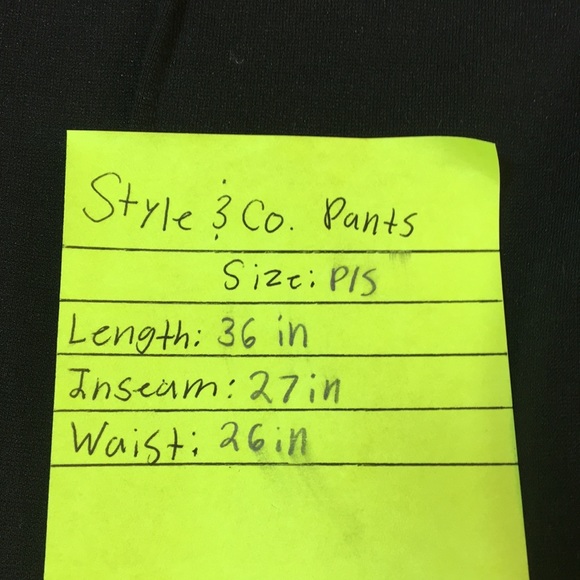 Style & Co. Pants
Size: P/S
Length: 36 in
Inseam: 27in
Waist: 26in